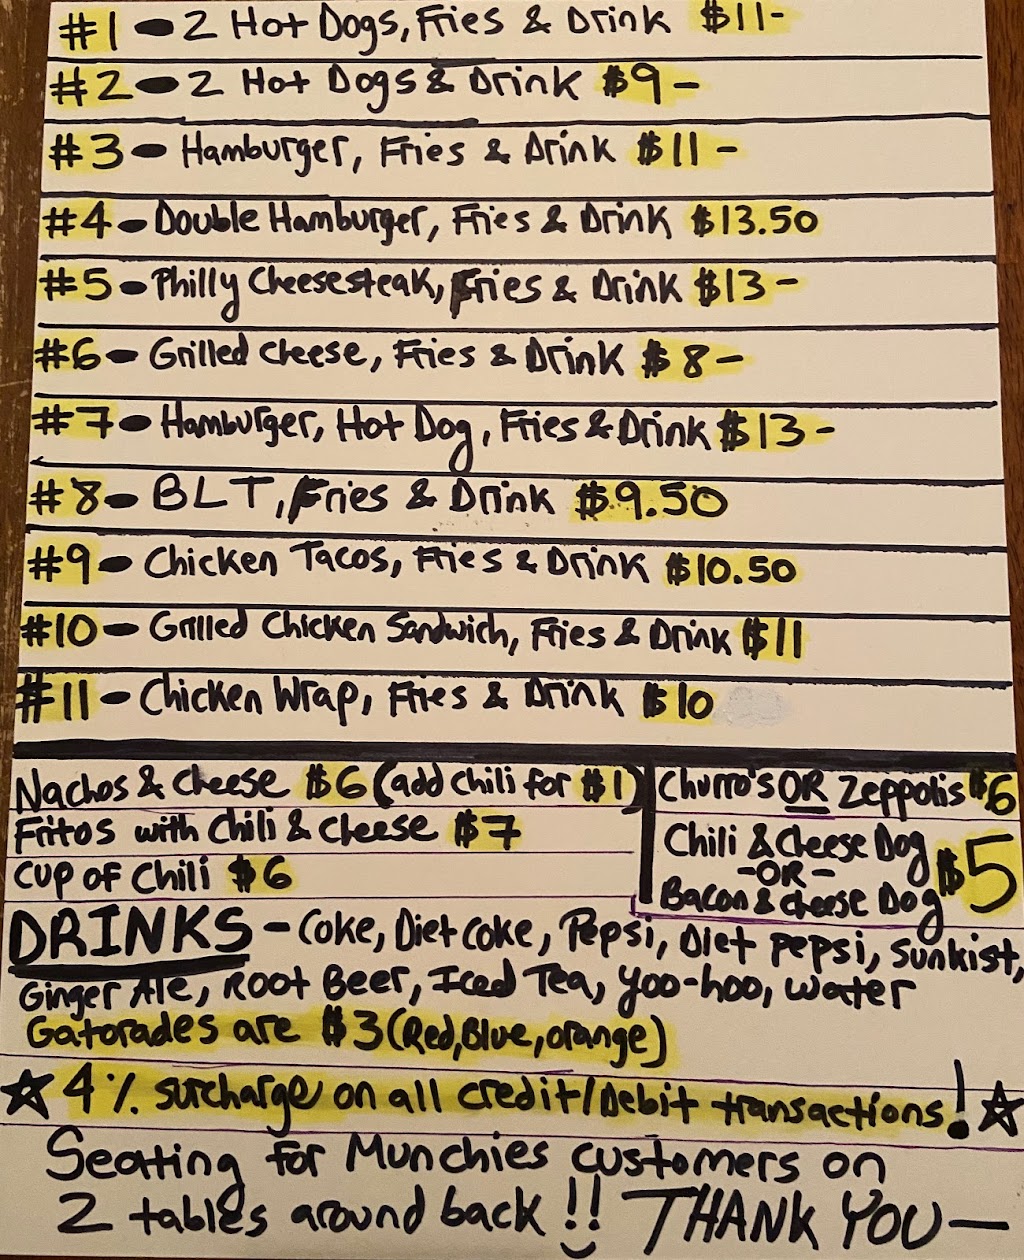 #1 - 2 Hot Dogs, Fries & Drink $11-
#2 - 2 Hot Dogs & Drink $9-
#3 - Hamburger, Fries & Drink $11-
#4 - Double Hamburger, Fries & Drink $13.50
#5 - Philly Cheesesteak, Fries & Drink $13-
#6 - Grilled Cheese, Fries & Drink $8-
#7 - Hamburger, Hot Dog, Fries & Drink $13-
#8 - BLT, Fries & Drink $9.50
#9 - Chicken Tacos, Fries & Drink $10.50
#10 - Grilled Chicken Sandwich, Fries & Drink $11
#11 - Chicken Wrap, Fries & Drink $10
Nachos & Cheese $6 (add Chili for $1)
Fritos with Chili & Cheese $7
Cup of Chili $6
Churro's OR Zeppolis $6
Chili & Cheese Dog
-OR- $5
Bacon & Cheese Dog
DRINKS - Coke, Diet Coke, Pepsi, Diet Pepsi, Sunkist,
Ginger Ale, Root Beer, Iced Tea, Yoo-hoo, Water
Gatorades are $3 (Red, Blue, orange)
☆ 4% surcharge on all credit/Debit transactions! ☆
Seating for Munchies customers on
2 tables around back!! THANK YOU-